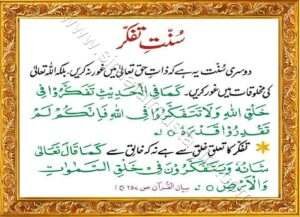 سُنّتِ تفکّر
دوسری سُنّت یہ ہے کہ ذاتِ حق تعالیٰ میں غور نہ کریں۔ بلکہ اللہ تعالیٰ
کی مخلوقات میں غور کریں۔ کَمَا فِی الْحَدِیْثِ تَفَکَّرُوْا فِیْ
خَلْقِ اللّٰهِ وَلَا تَتَفَکَّرُوْا فِی اللّٰهِ فَاِنَّکُمْ لَمْ
تَقْدِرُوْا قَدْرَهٗ
تفکّر کا تعلق خلق سے ہے نہ کہ خالق سے کَمَا قَالَ تَعَالٰی
شَانُهٗ وَیَتَفَکَّرُوْنَ فِیْ خَلْقِ السَّمٰوٰتِ
وَالْاَرْضِ بیان القرآن ص